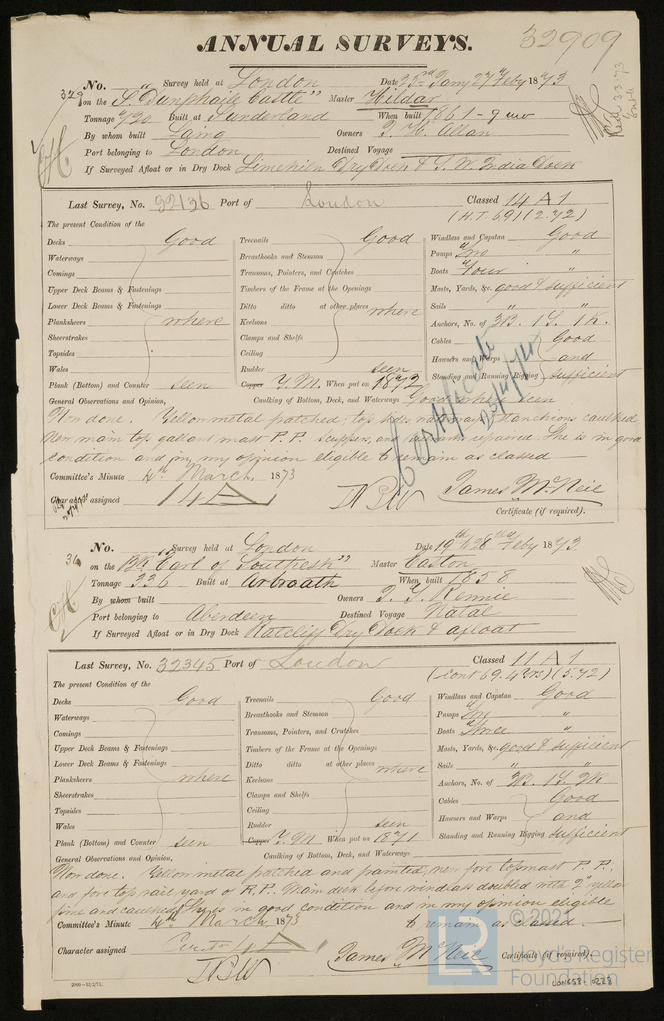 32909
ANNUAL SURVEYS.
No. 329 Survey held at London Date 23rd Jany 27 Feby 1873
on the S. "Dunphaile Castle" Master Hildar
Tonnage 720 Built at Sunderland When built 1861 - 9 mo
By whom built Laing Owners Allan
Port belonging to London Destined Voyage
If Surveyed Afloat or in Dry Dock Limekiln Dry Dock & S. W. India Dock
Last Survey, No. 32136 Port of London Classed 14 A 1
(H.T. 69) (2.72)
The present Condition of the
Decks Good Treenails Good Windlass and Capstan Good
Waterways Breasthooks and Stemson Pumps Two "
Comings Transoms, Pointers, and Crutches Boats Four "
Upper Deck Beams & Fastenings Timbers of the Frame at the Openings Masts, Yards, &c. good & sufficient
Lower Deck Beams & Fastenings Ditto ditto at other places where Sails " "
Planksheers where Keelsons Anchors, No. of 3B. 1S. 1K.
Sheerstrakes Clamps and Shelfs Cables Good
Topsides Ceiling Hawsers and Warps and
Wales Rudder seen Standing and Running Rigging sufficient
Plank (Bottom) and Counter seen Copper Y.M. When put on 1872
General Observations and Opinion, Caulking of Bottom, Deck, and Waterways Good where seen
Now done. Yellow metal patched; top stanchions caulked
New main top gallant mast P.P. scuppers, and repaired. She is in good
condition and in my opinion eligible to remain as classed
Certificate
Committee's Minute 4th March 1873
Character assigned 14 A
James McNeil
Certificate (if required).
No. 36 Survey held at London Date 19th & 28th Feby 1873
on the Bk "Earl of Southesk" Master Easton
Tonnage 336 Built at Arbroath When built 1858
By whom built Owners Rennie
Port belonging to Aberdeen Destined Voyage Natal
If Surveyed Afloat or in Dry Dock Ratcliff Dry Dock & afloat
Last Survey, No. 32345 Port of London Classed 11 A 1
(Cont 69. 4 yrs) (5.72)
The present Condition of the
Decks Good Treenails Good Windlass and Capstan Good
Waterways Breasthooks and Stemson Pumps "
Comings Transoms, Pointers, and Crutches Boats Three "
Upper Deck Beams & Fastenings Timbers of the Frame at the Openings Masts, Yards, &c. good & sufficient
Lower Deck Beams & Fastenings Ditto ditto at other places where Sails " "
Planksheers where Keelsons Anchors, No. of 3B. 1S. 2K
Sheerstrakes Clamps and Shelfs Cables Good
Topsides Ceiling Hawsers and Warps and
Wales Rudder seen Standing and Running Rigging sufficient
Plank (Bottom) and Counter seen Copper Y.M When put on 1871
General Observations and Opinion, Caulking of Bottom, Deck, and Waterways
Now done. Yellow metal patched and painted, new fore topmast P.P.,
and fore topsail yard of R.P. Main deck before windlass doubled with 2" yellow
pine and caulked. She is in good condition and in my opinion eligible
to remain as classed.
Committee's Minute 4th March 1873
Character assigned A
James McNeil
Certificate (if required).
2000-12/2/72.
© 2021
Lloyd's Register
Foundation
LR
LON658-0228